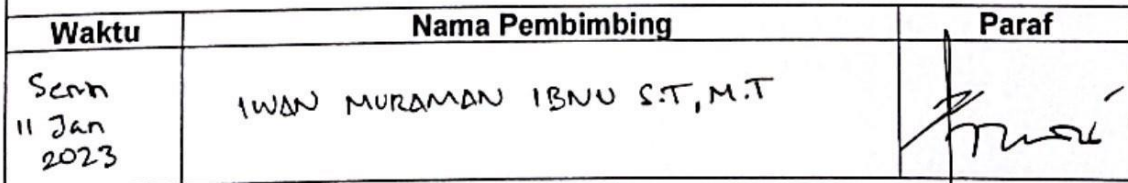 Waktu Nama Pembimbing Paraf
Senin
11 Jan
2023
IWAN MURAMAN IBNU S.T, M.T